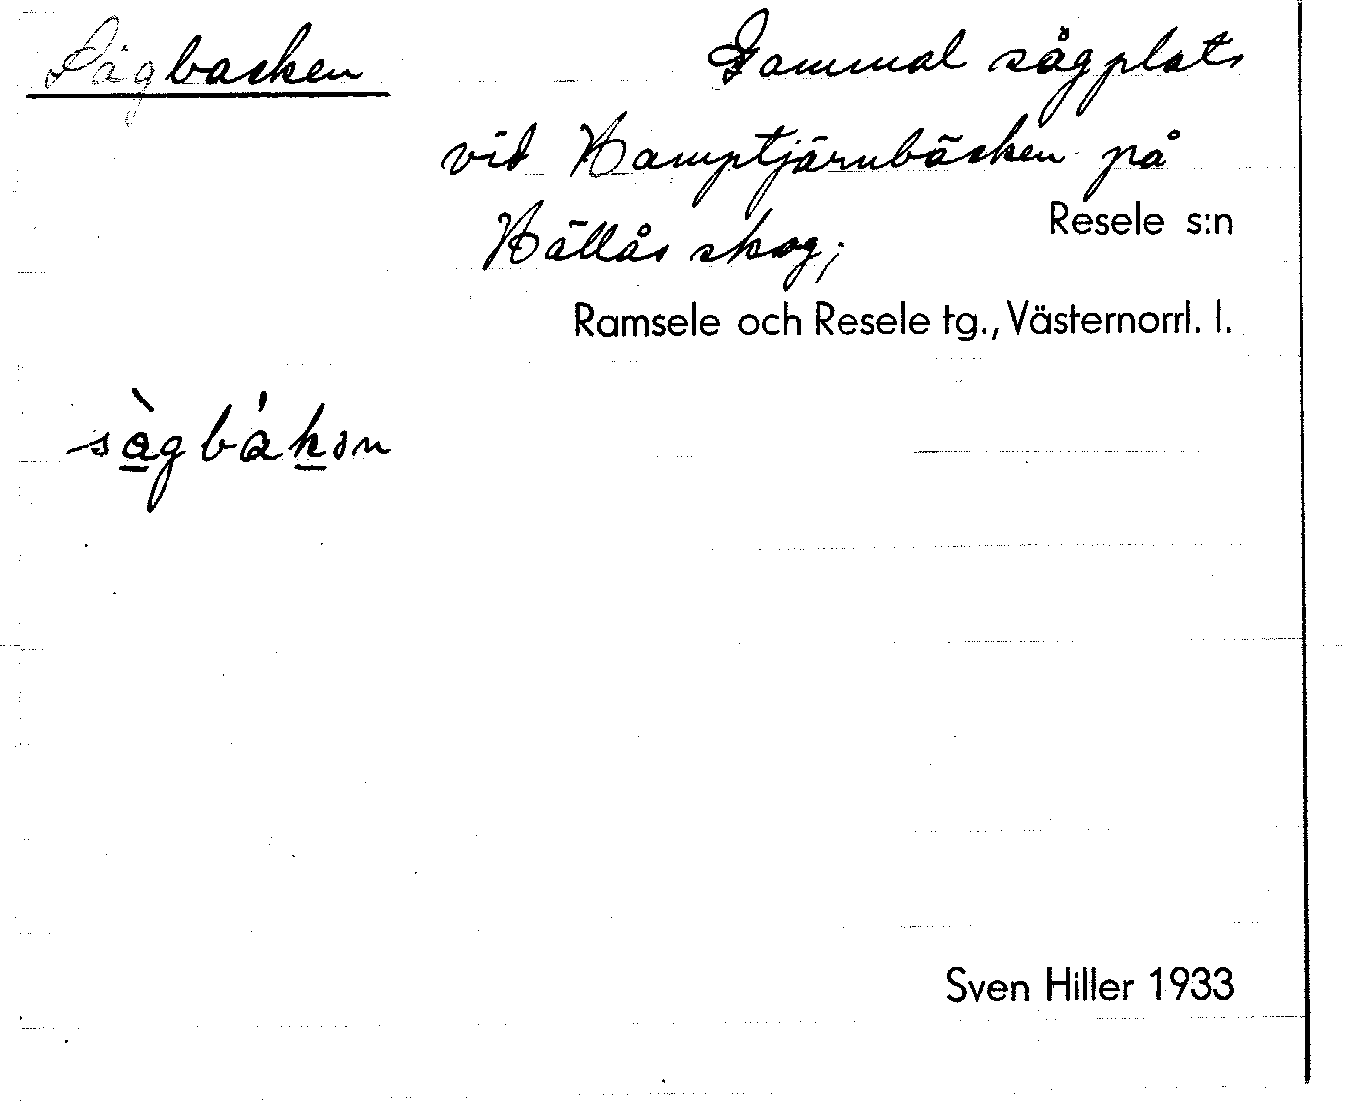 Sågbacken
Gammal sågplats
vid Kamptjärnbäcken på
Resele s:n
Källås skog;
Ramsele och Resele tg., Västernorrl. l.
sàgbákən
Sven Hiller 1933